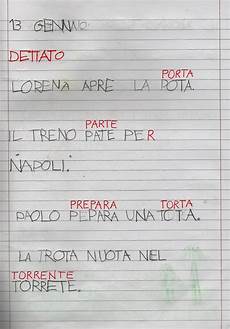 13 GENNAIO
DETTATO
PORTA
LORENA APRE LA POTA.
PARTE
IL TRENO PATE PER
NAPOLI.
PREPARA TORTA
PAOLO PEPARA UNA TOTA.
LA TROTA NUOTA NEL
TORRENTE
TORRETE.